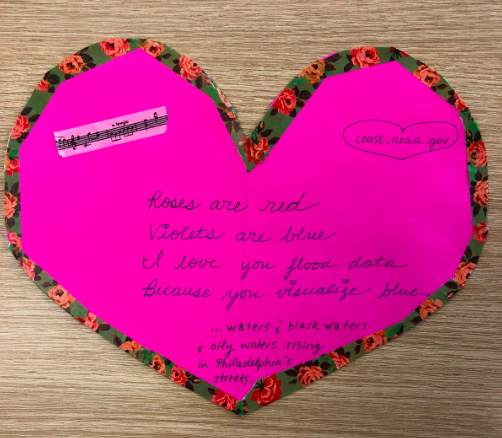 coast.noaa.gov
Roses are red
Violets are blue
I love you flood data
Because you visualize blue...
...waters & black waters
& oily waters rising
in Philadelphia's
streets.